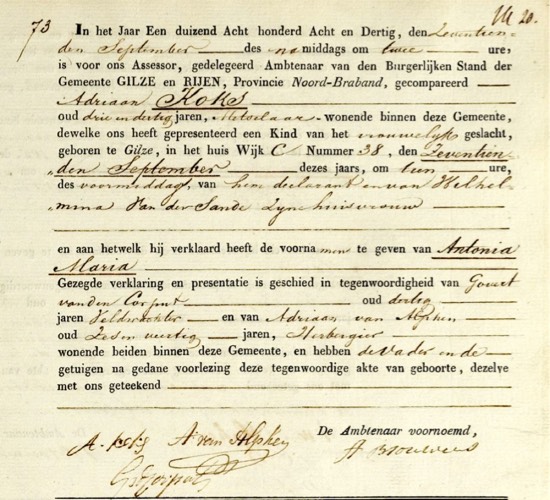 73
In het Jaar Een duizend Acht honderd Acht en Dertig, den Zeventien-
den September des na middags om twee ure,
is voor ons Assessor, gedelegeerd Ambtenaar van den Burgerlijken Stand der
Gemeente GILZE en RIJEN, Provincie Noord-Braband, gecompareerd
Adriaan Koks
oud drie en dertig jaren, Metselaar wonende binnen deze Gemeente,
dewelke ons heeft gepresenteerd een Kind van het vrouwelijk geslacht,
geboren te Gilze, in het huis Wijk C Nummer 38, den Zeventien-
„den September dezes jaars, om tien ure,
des voormiddags, van hem declarant en van Wilhel-
„mina Van der Sande Zyne huisvrouw
en aan hetwelk hij verklaard heeft de voorna men te geven van Antonia
Maria
Gezegde verklaring en presentatie is geschied in tegenwoordigheid van Govert
van den Corput oud dertig
jaren Veldwachter en van Adriaan van Alphen
oud Zes en veertig jaren, Herbergier
wonende beiden binnen deze Gemeente, en hebben de Vader en de
getuigen na gedane voorlezing deze tegenwoordige akte van geboorte, dezelve
met ons geteekend
De Ambtenaar voornoemd,
A. koks A van Alphen
A Brouwers